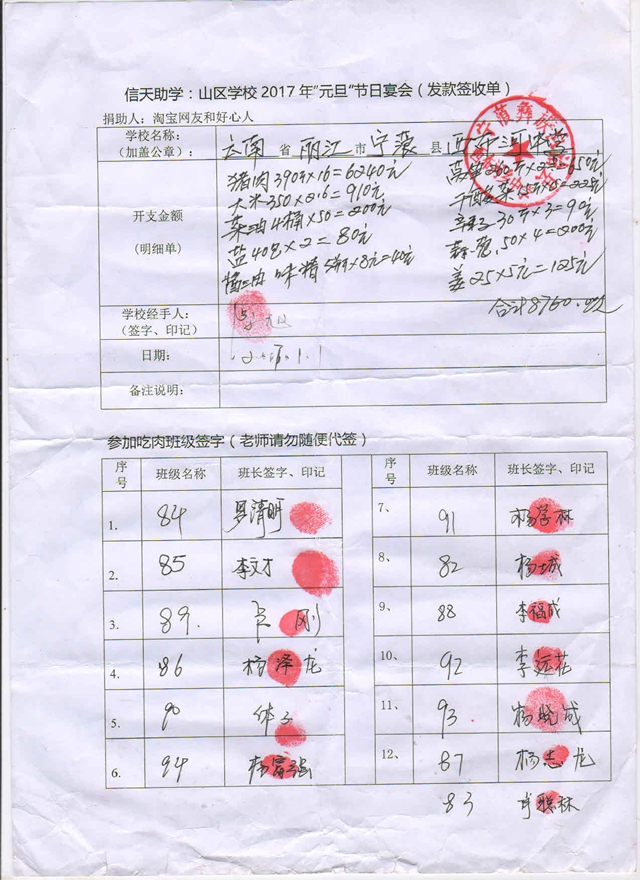 信天助学：山区学校2017年"元旦"节日宴会（发款签收单）
捐助人：淘宝网友和好心人
学校名称：
（加盖公章）：
云南 省 丽江 市 宁蒗 县 中学
开支金额
（明细单）
猪肉390斤×16=6240元
大米350×2.6=910元
菜油4桶×50=200元
盐40包×2=80元
味精 5 ×8元=40元
30斤×3=90元
50×4=200元
姜25×5元=125元
合计8760.
学校经手人：
（签字、印记）
日期：
2017.1.1
备注说明：
参加吃肉班级签字（老师请勿随便代签）
序号 班级名称 班长签字、印记 序号 班级名称 班长签字、印记
1. 84 罗清明
2. 85 李文才
3. 89. 刚
4. 86 杨泽龙
5. 90
6. 94 杨富强
7、 91 杨学林
8、 82 杨 城
9、 88 李福成
10、 92 李运花
11、 93 杨晓成
12、 87 杨志龙
83 聪林